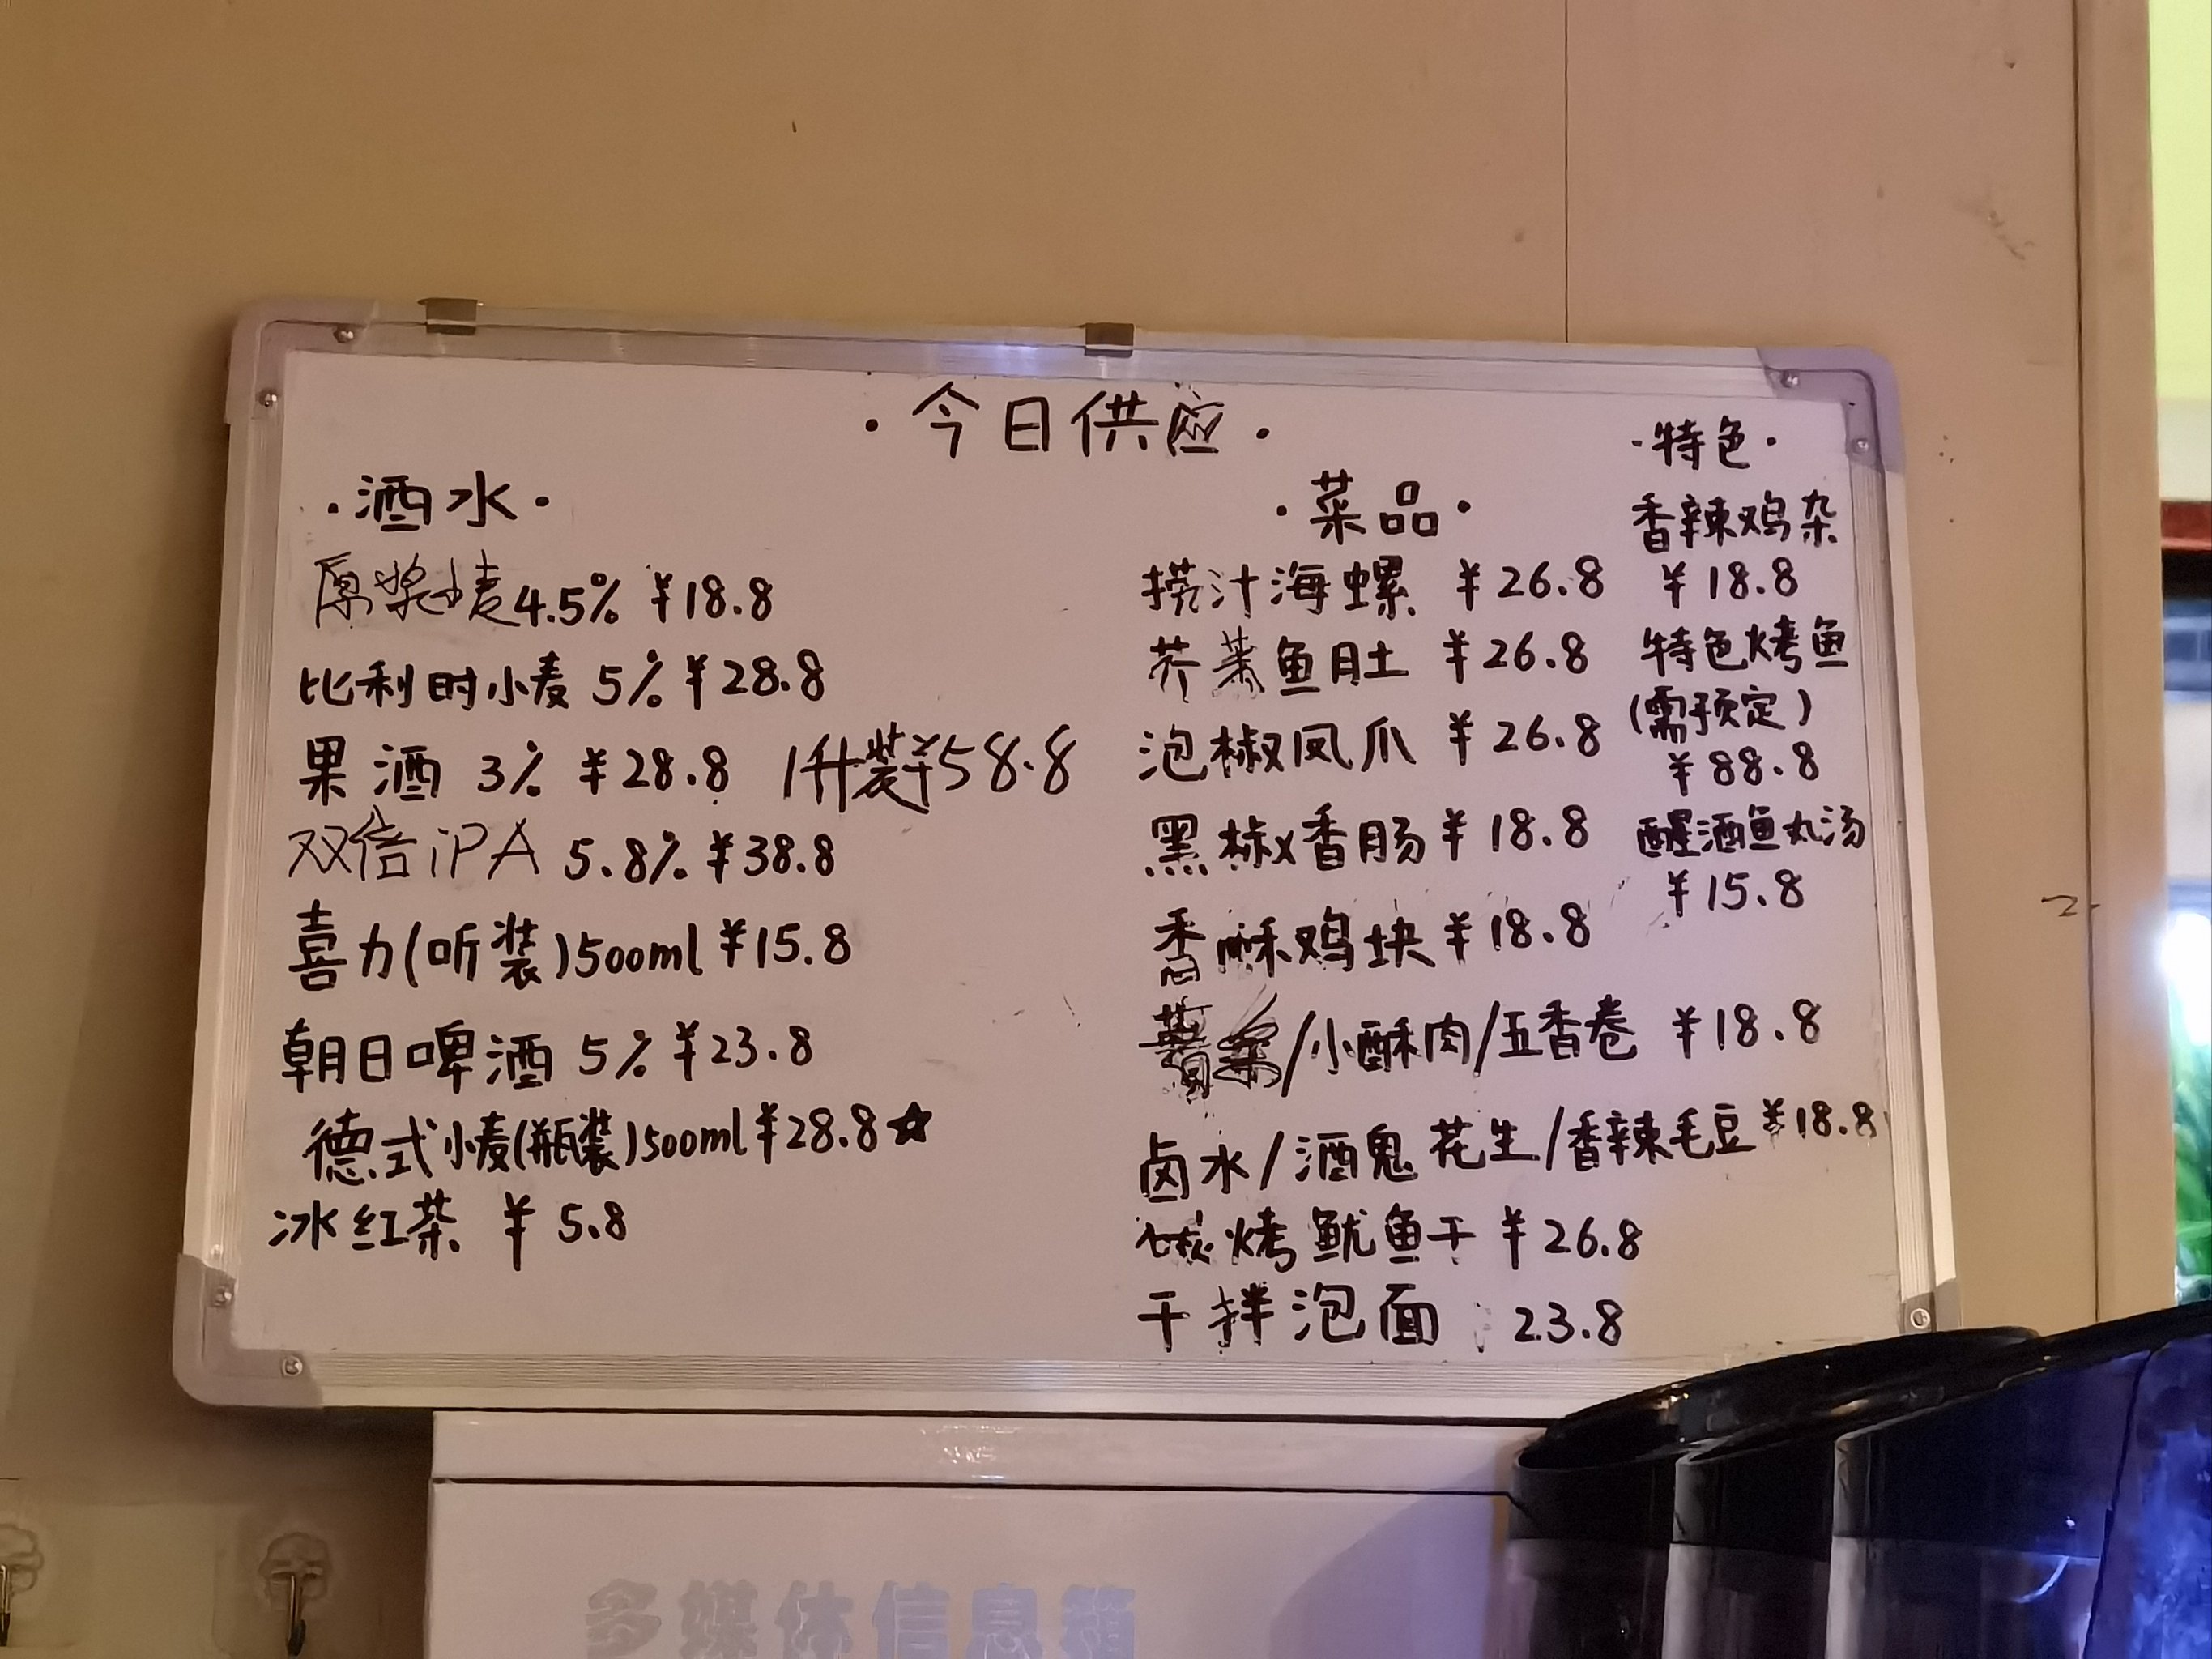 ·今日供应·
·酒水·
原浆小麦4.5% ¥18.8
比利时小麦 5% ¥28.8
果酒 3% ¥28.8 1升装¥58.8
双倍iPA 5.8% ¥38.8
喜力(听装)500ml ¥15.8
朝日啤酒 5% ¥23.8
德式小麦(瓶装)500ml ¥28.8☆
冰红茶 ¥5.8
·菜品·
捞汁海螺 ¥26.8
芥菜鱼肚 ¥26.8
泡椒凤爪 ¥26.8
黑椒香肠 ¥18.8
香酥鸡块 ¥18.8
/小酥肉/五香卷 ¥18.8
卤水/酒鬼花生/香辣毛豆 ¥18.8
碳烤鱿鱼干 ¥26.8
干拌泡面 23.8
·特色·
香辣鸡杂
¥18.8
特色烤鱼
(需预定)
¥88.8
醒酒鱼丸汤
¥15.8
多媒体信息箱